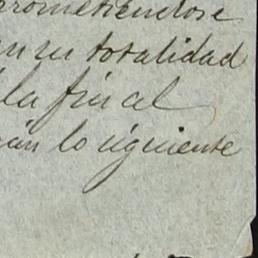 prometiendose
en su totalidad
la fincal
rán lo siguiente